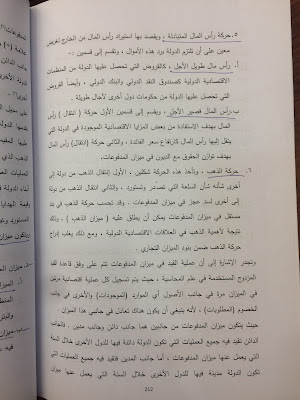 ٥. حركة رأس المال المتبادلة : ويقصد بها استيراد رأس المال من الخارج لغرض
معين على أن تلتزم الدولة برد هذه الأموال ، وتقسم إلى قسمين :-
أ. رأس مال طويل الأجل ، كالقروض التي تحصل عليها الدولة من المنظمات
الاقتصادية الدولية كصندوق النقد الدولي والبنك الدولي ، وأيضا القروض
التي تحصل عليها الدولة من حكومات دول أخرى لآجال طويلة .
ب. رأس المال قصير الأجل ، ويقسم إلى قسمين الأول حركة ( انتقال ) رأس
المال بهدف الاستفادة من بعض المزايا الاقتصادية الموجودة في الدولة التي
انتقل إليها رأس المال كارتفاع سعر الفائدة ، والثاني حركة (انتقال) رأس المال
بهدف توازن الحقوق مع الديون في ميزان المدفوعات.
٦. حركة الذهب ، وتأخذ هذه الحركة شكلين ، الأول انتقال الذهب من دولة إلى
أخرى شأنه شأن السلعة التي تصدر وتستورد ، والثاني انتقال الذهب من دولة
إلى أخرى لسد عجز في ميزان المدفوعات . وقد تحسب حركة الذهب في بند
مستقل في ميزان المدفوعات ويمكن أن يطلق عليه ( ميزان الذهب ) ، وذلك
نتيجة لأهمية الذهب في العلاقات الاقتصادية الدولية ، ومع ذلك يغلب إدراج
حركة الذهب ضمن بنود الميزان التجاري .
وتجدر الإشارة إلى أن عملية القيد في ميزان المدفوعات تتم على وفق قاعدة القيد
المزدوج المستخدمة في علم المحاسبة ، حيث يتم تسجيل كل عملية اقتصادية مرتين
في الميزان مرة في جانب الأصول أي الموارد (الموجودات) والأخرى في جانب
الخصوم (المطلوبات) ، لأنه ينبغي أن يكون هناك تعادل في جانبي هذا الميزان .
حيث يتكون ميزان المدفوعات من جانبين هما جانب دائن وجانب مدين . فالجانب
الدائن تقيد فيه جميع العمليات التي تكون الدولة دائنة فيها للدول الأخرى خلال السنة
التي يعمل عنها ميزان المدفوعات ، أما جانب المدين فتقيد فيه جميع العمليات التي
تكون الدولة مدينة فيها للدول الأخرى خلال السنة التي يعمل عنها ميزان